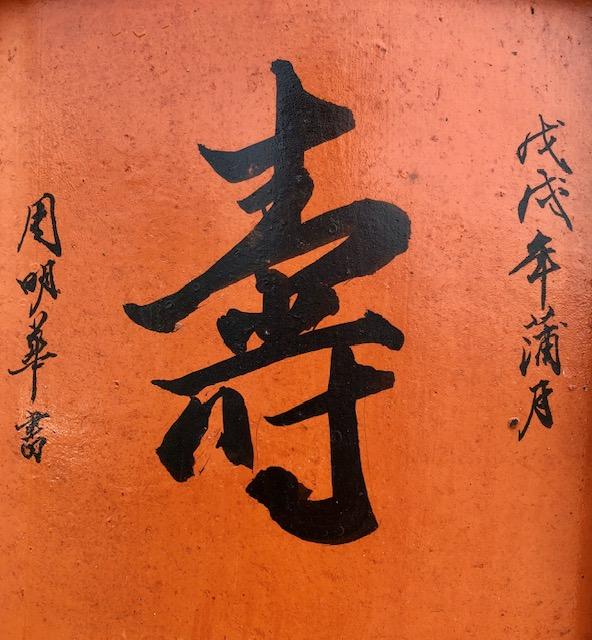 戊戌年蒲月
壽
周明華書